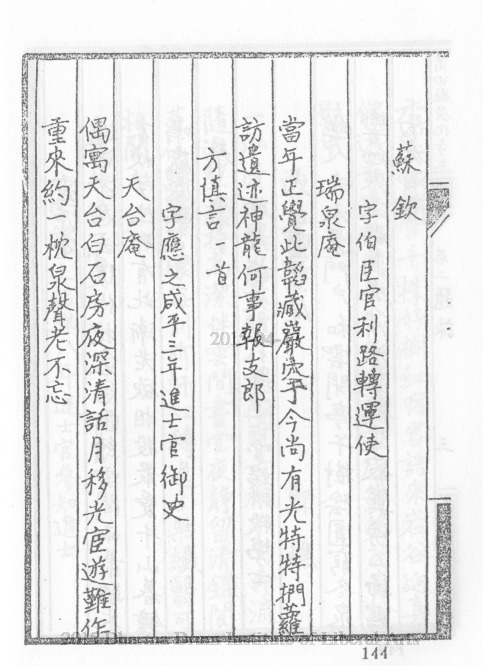 蘇欽
字伯臣官利路轉運使
瑞泉庵
當年正覺此韜藏巖穴于今尚有光特特捫蘿
訪遺迹神龍何事報支郎
方慎言一首
字應之咸平三年進士官御史
天台庵
偶寓天台白石房夜深清話月移光宦遊難作
重來約一枕泉聲老不忘
144